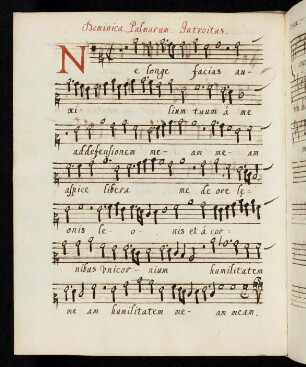 Dominica Palmarum. Introitus.
Ne longe facias au-
xi- lium tuum á me
ad defensionem me- am me- am
aspice libera me de ore le-
onis le- o- nis et á cor-
nibus Vnicor- nium humilitatem
me am humilitatem me- am meam.